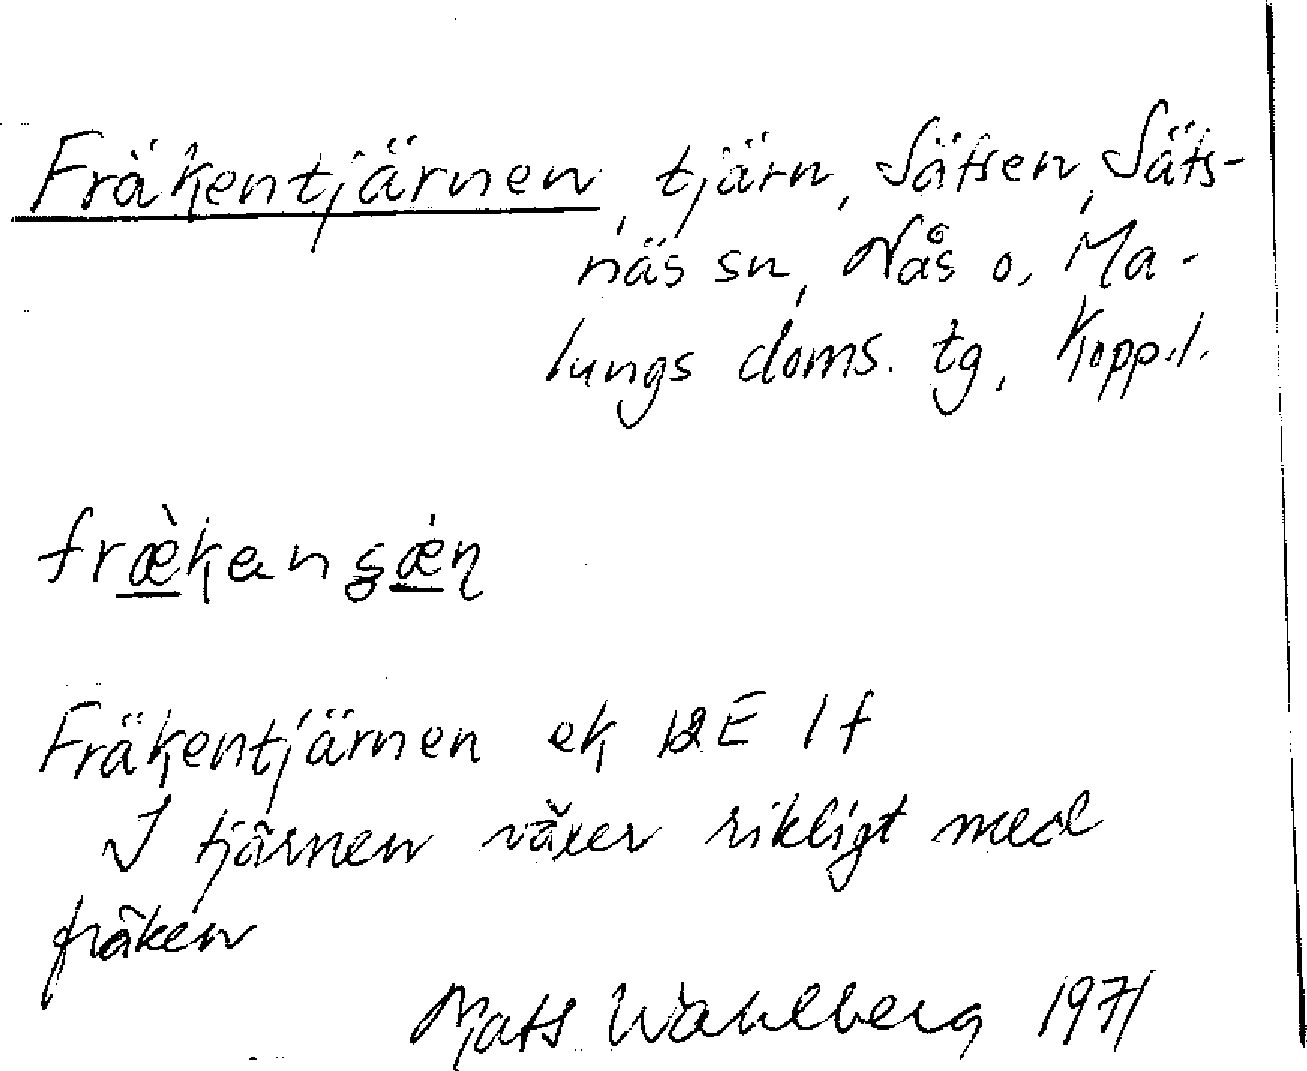 Fräkentjärnen, tjärn, Sätsen, Säts-
näs sn, Nås o. Ma-
lungs doms. tg, Kopp.l.
Fräkentjärnen ek 12E 1f
I tjärnen växer rikligt med
fräken
Mats Wahlberg 1971